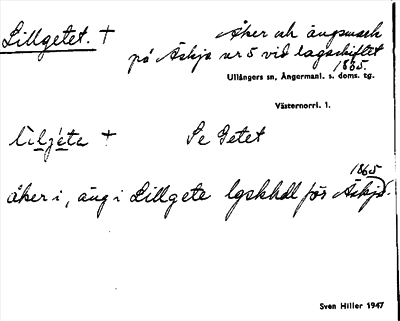 Lillgetet. † Åker och ängsmark
på Äskja nr 5 vid lagaskiftet
1865.
Ullångers sn, Ångermanl. s. doms. tg.
Västernorrl. l.
† Se Getet
1865
åker i, äng i Lillgete lgskhdl för Äskja.
Sven Hiller 1947